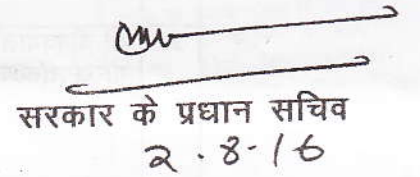 सरकार के प्रधान सचिव
2.8-16